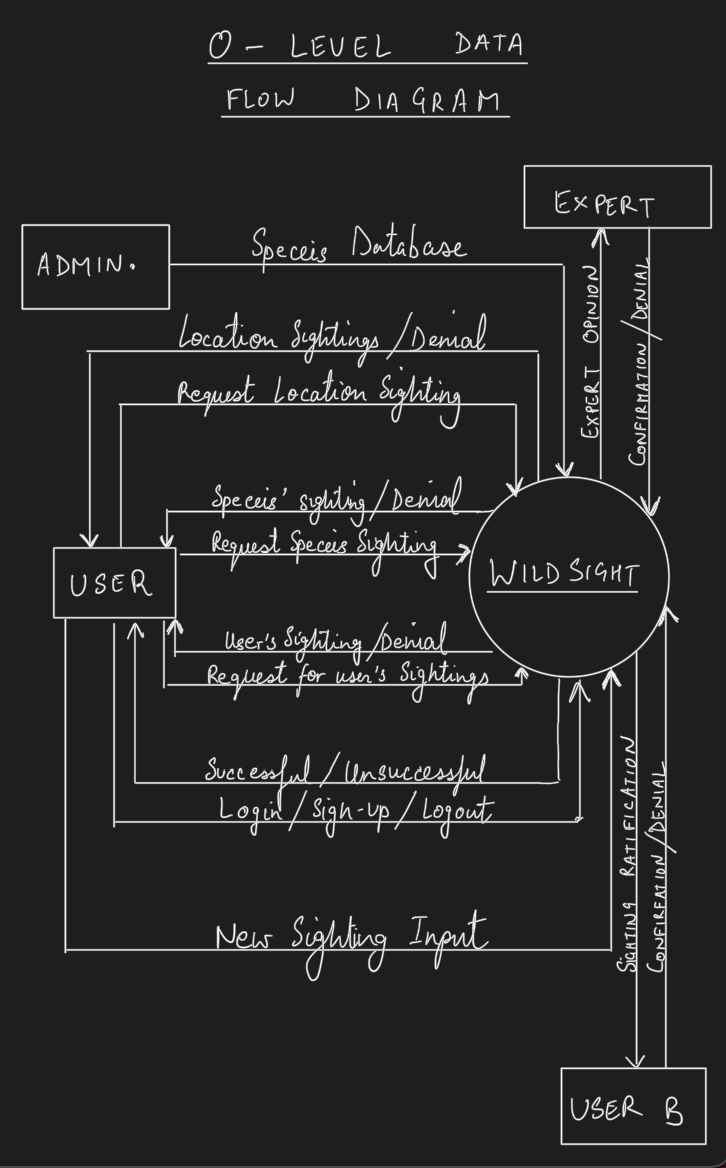 0 - LEVEL DATA
FLOW DIAGRAM
EXPERT
ADMIN.
Speceis Database
EXPERT OPINION
CONFIRMATION/DENIAL
Location Sightings/Denial
Request Location Sighting
Speceis' sighting/Denial
Request Speceis Sighting
USER
WILDSIGHT
User's Sighting/Denial
Request for user's Sightings
Successful/Unsuccessful
Login/Sign-up/Logout
SIGHTING RATIFICATION
CONFIRFATION/DENIAL
New Sighting Input
USER B